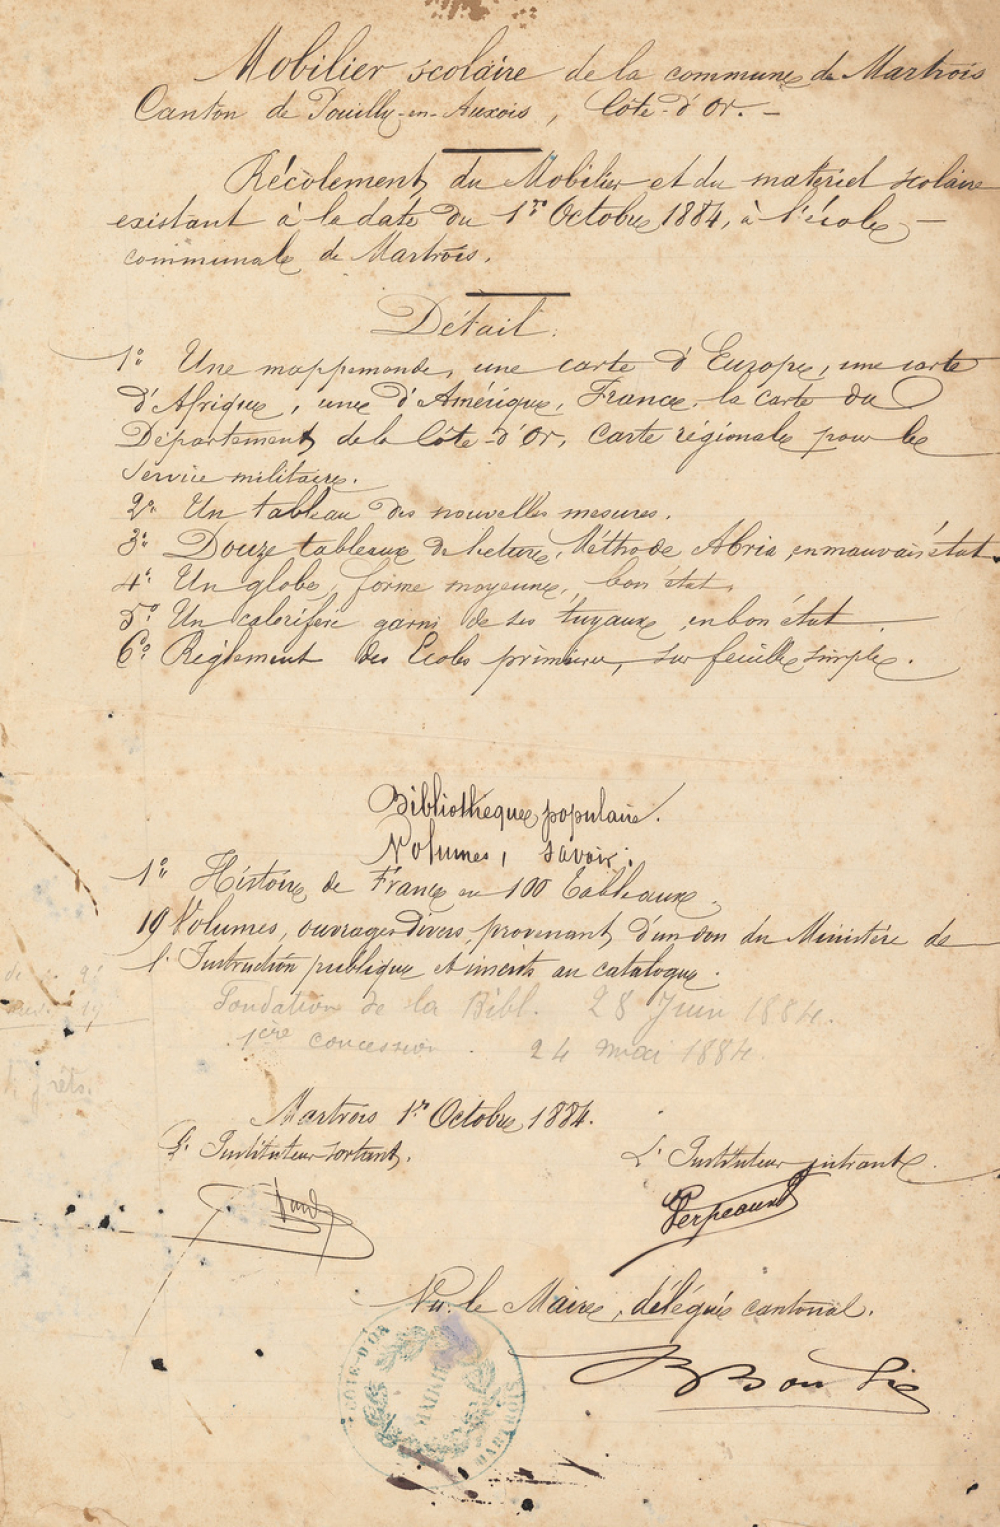 Mobilier scolaire de la commune de Martrois
Canton de Pouilly-en-Auxois, Côte-d'Or. —
Récolement du Mobilier et du matériel scolaire
existant à la date du 1er Octobre 1884, à l'école —
communale de Martrois.
Détail.
1° Une mappemonde, une carte d'Europe, une carte
d'Afrique, une d'Amérique, France, la carte du
Département de la Côte-d'Or, Carte régionale pour le
service militaire.
2° Un tableau des nouvelles mesures.
3° Douze tableaux de lecture, Méthode Abria, en mauvais état.
4° Un globe, forme moyenne, bon état.
5° Un calorifère garni de ses tuyaux en bon état.
6° Règlement des Ecoles primaires, sur feuille simple.
Bibliothèque populaire.
Volumes, savoir:
1° Histoire de France en 100 Tableaux.
19 Volumes, ouvrages divers, provenant d'un don du Ministère de
l'Instruction publique et inscrits au catalogue.
Fondation de la Bibl. 28 Juin 1884.
1ère concession. 24 mai 1884.
prêts.
Martrois 1er Octobre 1884.
L'Instituteur sortant,
L'Instituteur entrant.
Vu: le Maire, délégué cantonal.
CÔTE-D'OR
MAIRIE
MARTROIS